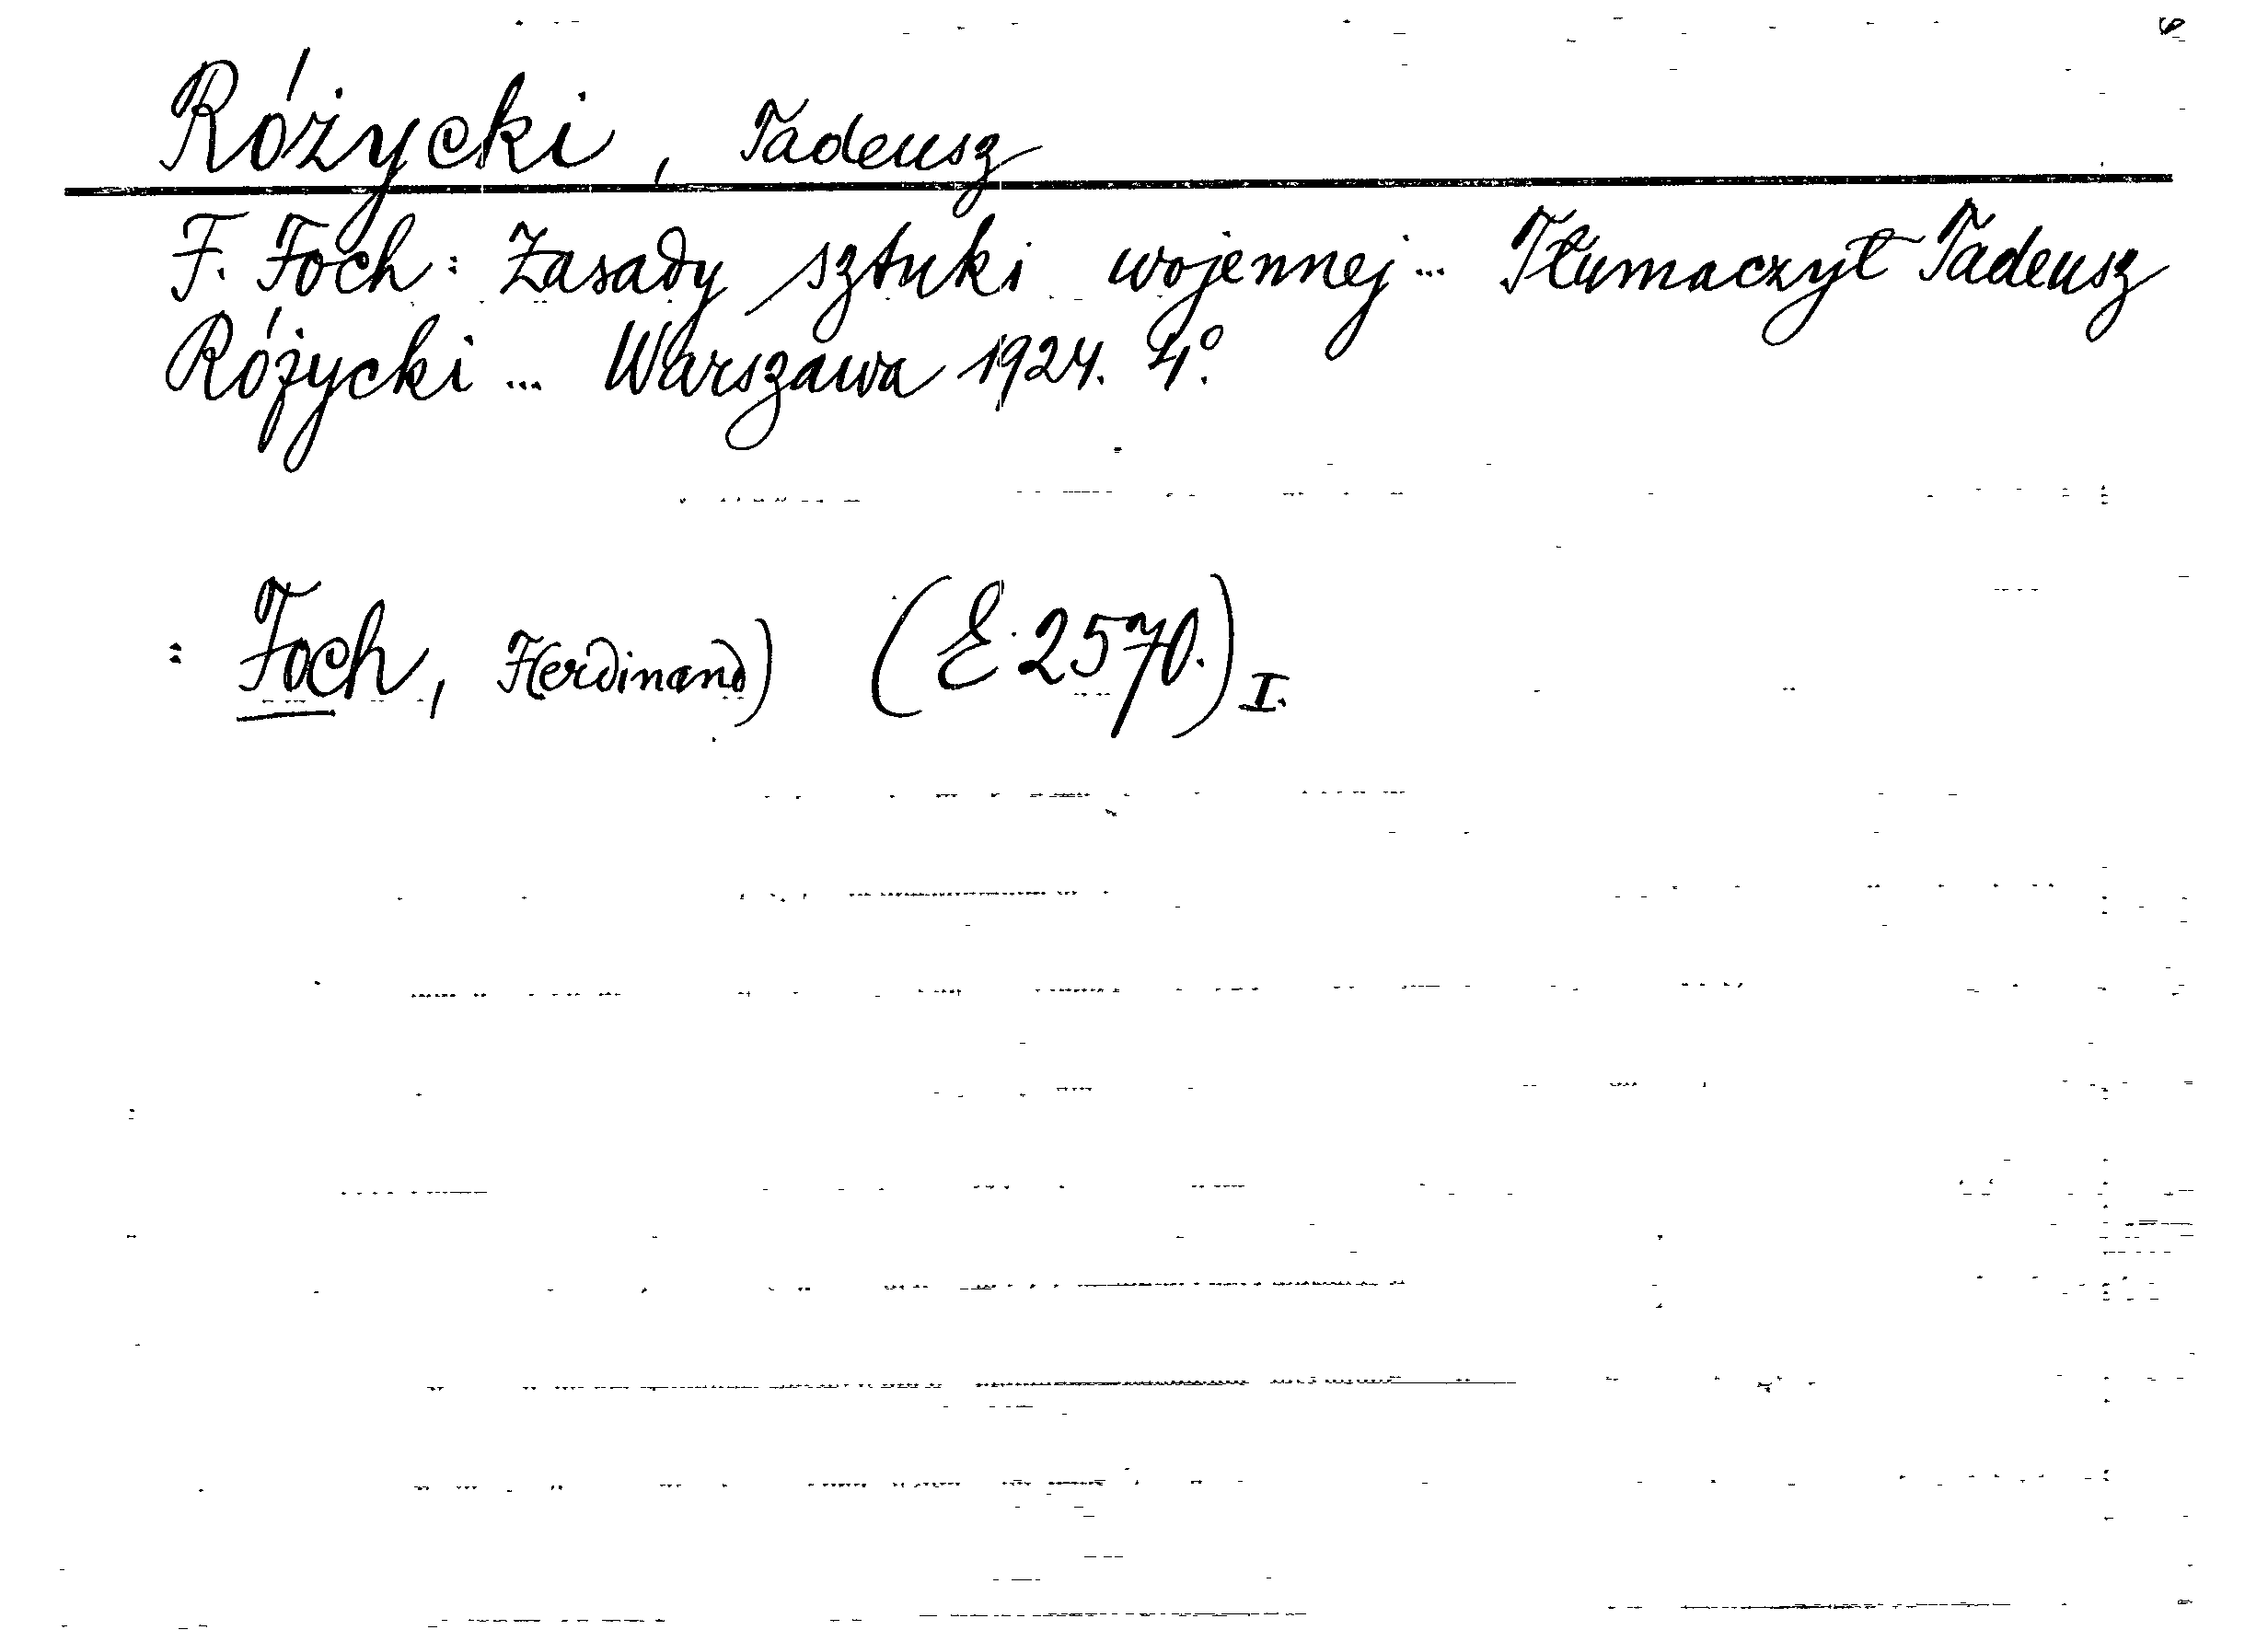 Różycki, Tadeusz
F. Foch: Zasady sztuki wojennej... Tłumaczył Tadeusz
Różycki ... Warszawa 1924. 4°.
= Foch, F(erdinand) (E. 2570.) I.